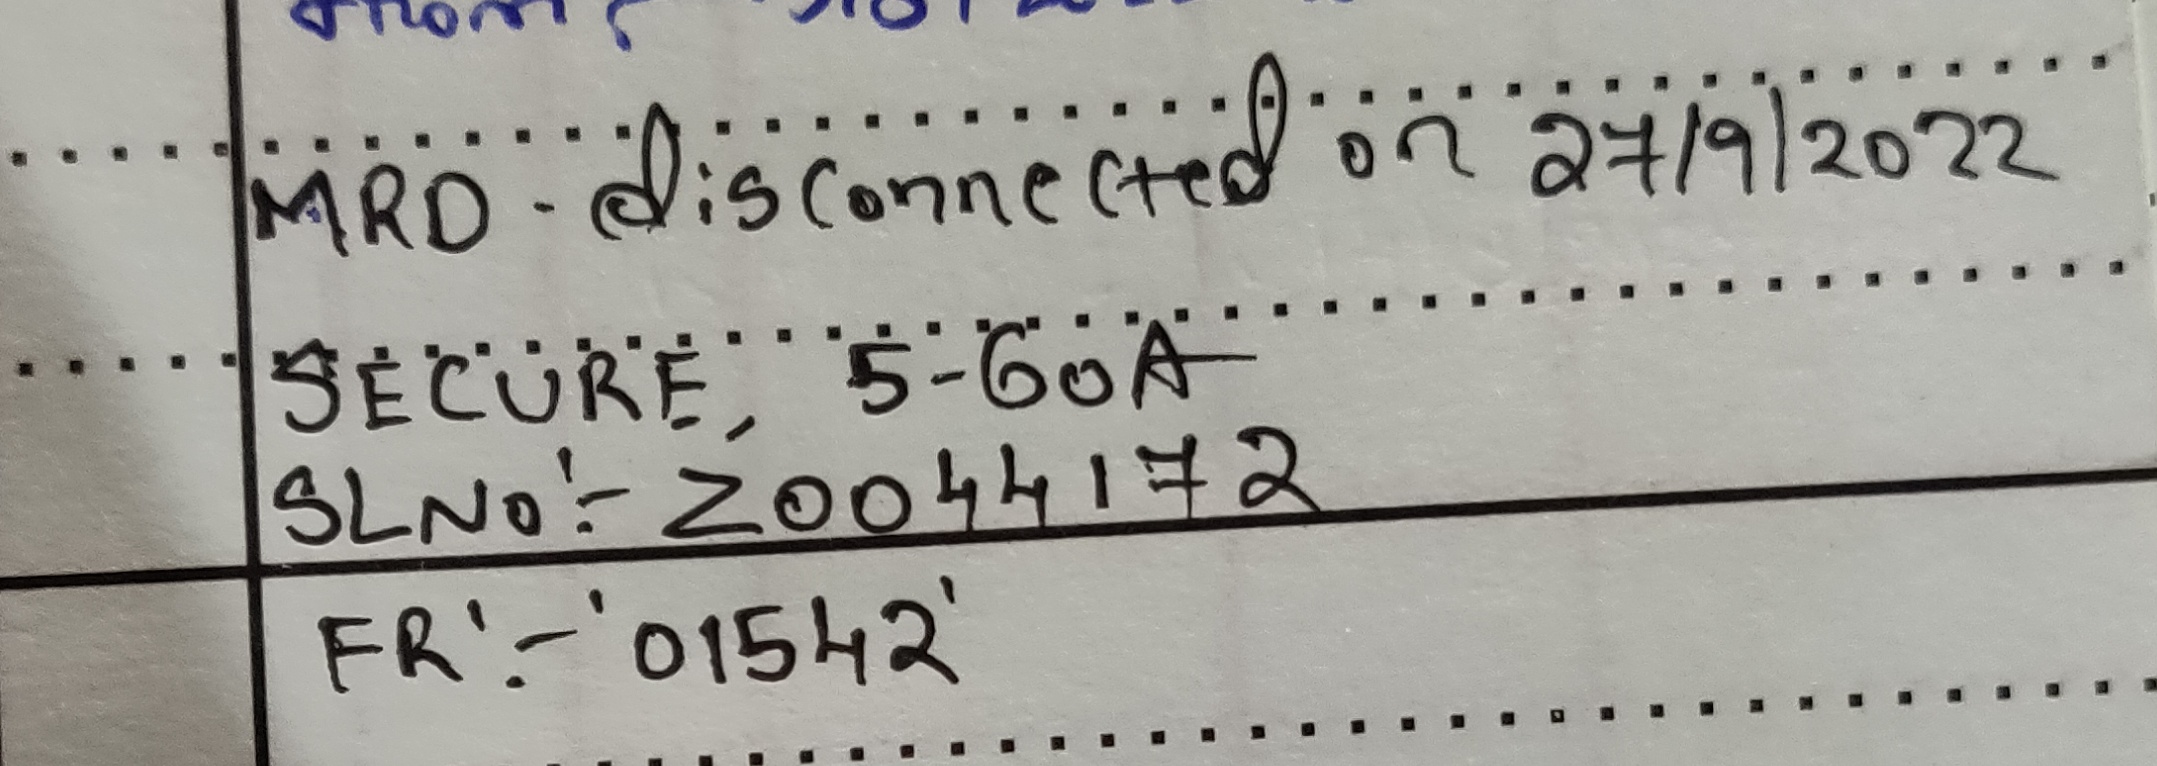 MRD - disconnected on 27/9/2022
SECURE, 5-60A
SLNO:- Z0044172
FR:- '01542'